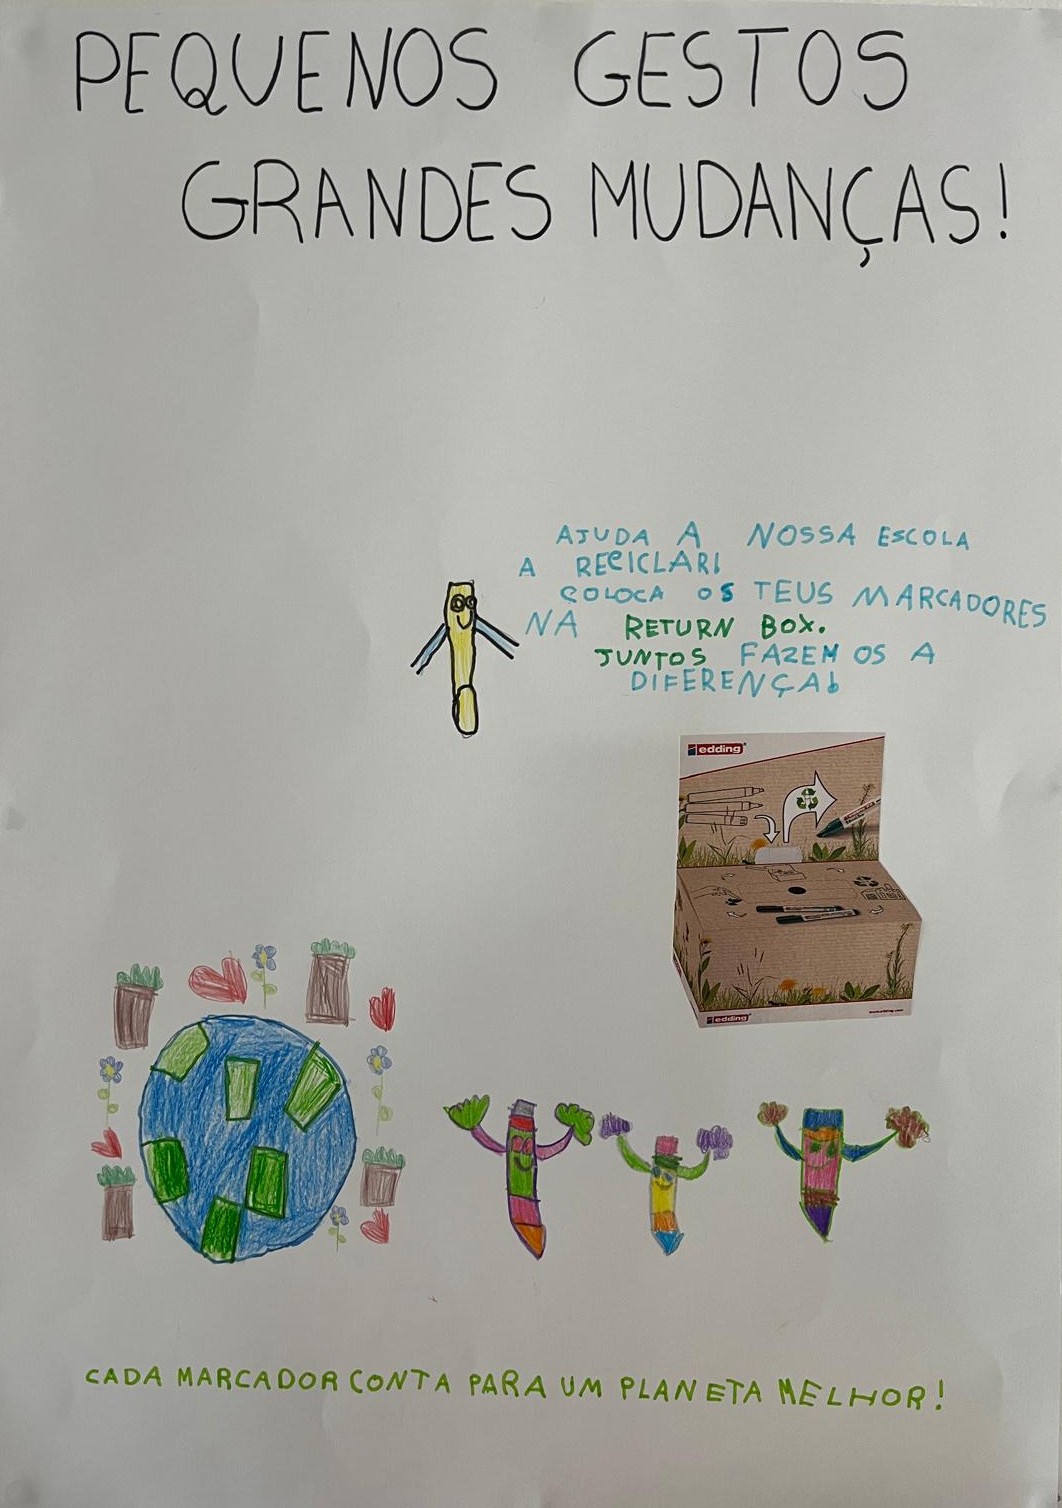 PEQUENOS GESTOS
GRANDES MUDANÇAS!
AJUDA A NOSSA ESCOLA
A RECICLAR!
COLOCA OS TEUS MARCADORES
NA RETURN BOX.
JUNTOS FAZEM OS A
DIFERENÇA!
edding
edding
www.edding.com
CADA MARCADOR CONTA PARA UM PLANETA MELHOR!